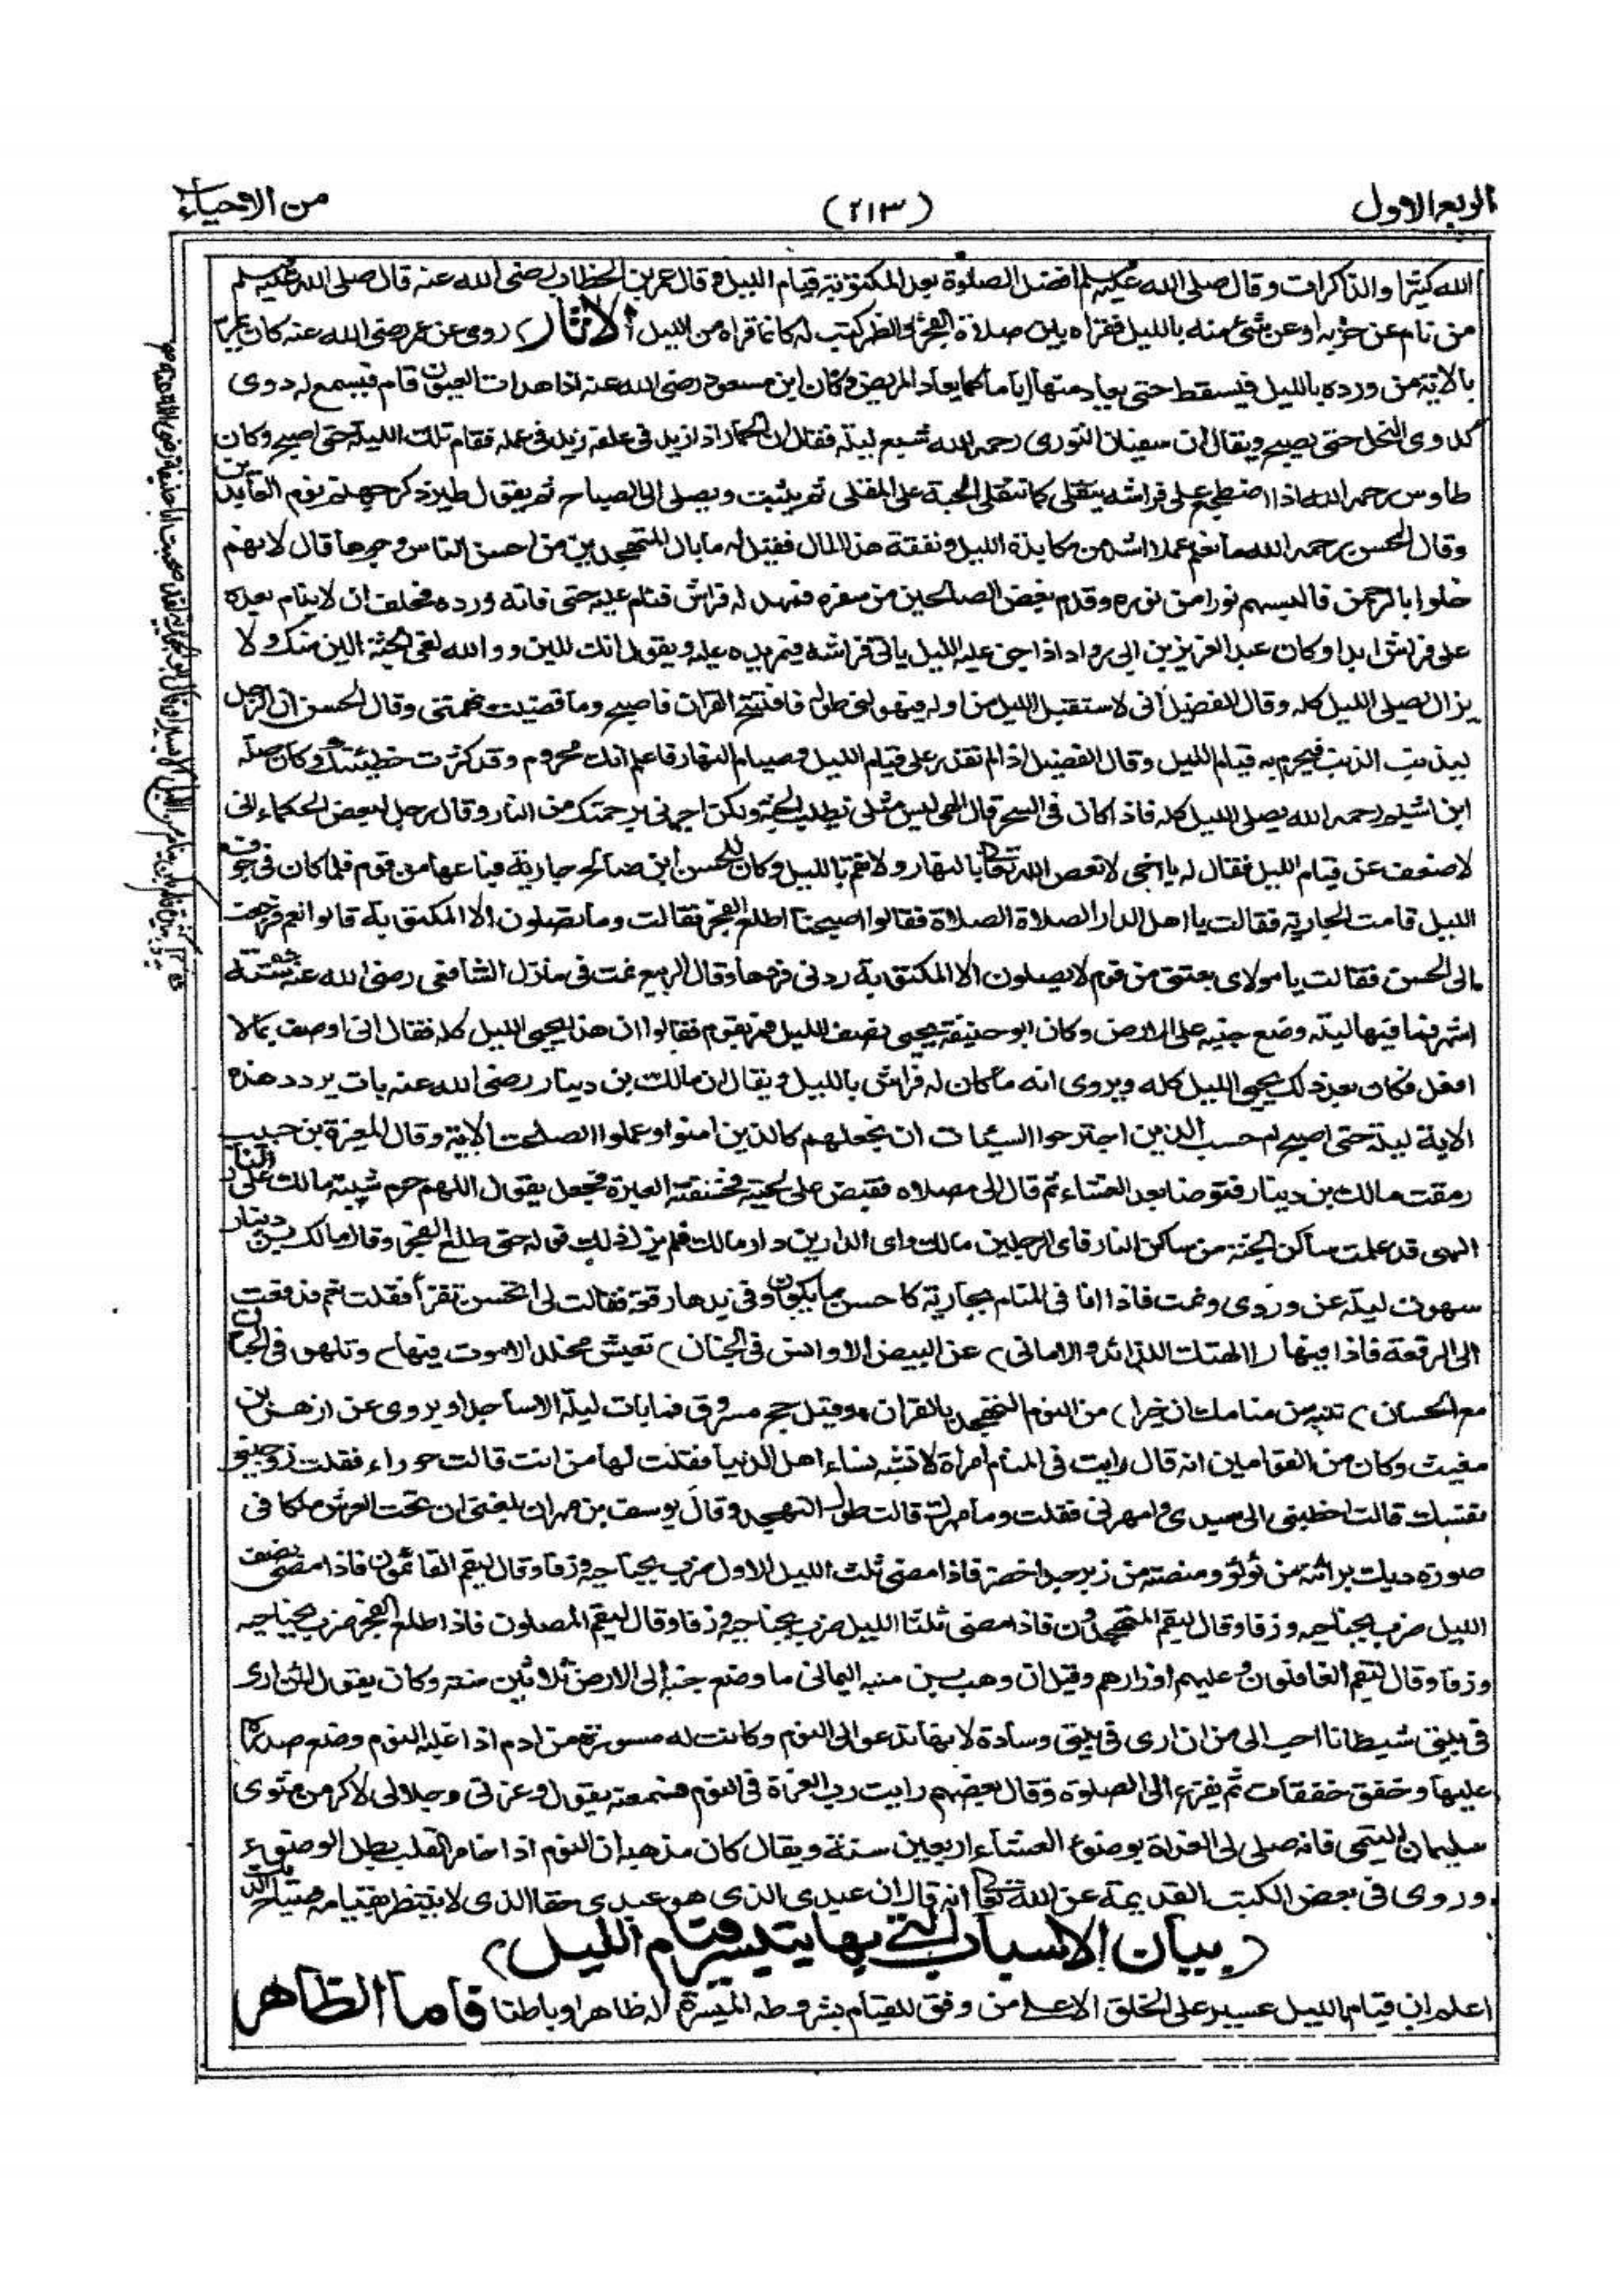 الربع الاول
(٢١٣)
من الاحياء
الله كثيرا والذاكرات وقال صلى الله عليه وسلم افضل الصلوة بعد المكتوبة قيام الليل وقال عمر بن الخطاب رضى الله عنه قال صلى الله عليه وسلم
من نام عن حزبه او عن شئ منه بالليل فقراه بين صلاة الفجر والظهر كتب له كانما قراه من الليل الاثار) روى عن عمر رضى الله عنه كان يمر
بالاية من ورده بالليل فيسقط حتى يعاد منها اياما كما يعاد المريض وكان ابن مسعود رضى الله عنه اذا هدات العيون قام فيسمع له دوى
كدوى النحل حتى يصبح ويقال ان سفيان الثورى رحمه الله شبع ليلة فقال ان الحمار اذا زيد فى علفه زيد فى عمله فقام تلك الليلة حتى اصبح وكان
طاوس رحمه الله اذا اضطجع على فراشه يتقلى كما تتقلى الحبة على المقلى ثم يثب ويصلى الى الصباح ثم يقول طير ذكر جهنم نوم العابدين
وقال الحسن رحمه الله ما نعم عملا اشد من مكابدة الليل ونفقة هذا المال فقيل له ما بال المتهجدين من احسن الناس وجوها قال لانهم
خلوا بالرحمن فالبسهم نورا من نوره وقدم بعض الصالحين من سفره فمهد له فراش فنام عليه حتى فاته ورده فحلف ان لا ينام بعده
على فراش ابدا وكان عبد العزيز بن ابى رواد اذا جن عليه الليل ياتى فراشه فيمر يده عليه ويقول انك للين ووالله لفى الجنة الين منك ولا
يزال يصلى الليل كله وقال الفضيل انى لاستقبل الليل من اوله فيهولنى طوله فافتتح القران فاصبح وما قضيت نهمتى وقال الحسن ان الرجل
ليذنب الذنب فيحرم به قيام الليل وقال الفضيل اذا لم تقدر على قيام الليل وصيام النهار فاعلم انك محروم وقد كثرت خطيئتك وكان صلة
ابن اشيم رحمه الله يصلى الليل كله فاذا كان فى السحر قال الهى ليس مثلى يطلب الجنة ولكن اجرنى برحمتك من النار وقال رجل لبعض الحكماء انى
لاضعف عن قيام الليل فقال له يا اخى لا تعص الله تعالى بالنهار ولا تقم بالليل وكان للحسن ابن صالح جارية فباعها من قوم فلما كان فى جوف
الليل قامت الجارية فقالت يا اهل الدار الصلاة الصلاة فقالوا اصبحنا اطلع الفجر فقالت وما تصلون الا المكتوبة قالوا نعم فرجعت
الى الحسن فقالت يا مولاى بعتنى من قوم لا يصلون الا المكتوبة ردنى فردها وقال الربيع نمت فى منزل الشافعى رضى الله عنه
فيها ليلة وضع جنبه على الارض وكان ابو حنيفة يحيى نصف الليل فمر بقوم فقالوا ان هذا يحيى الليل كله فقال انى اوصف بما لا
افعل فكان بعد ذلك يحيى الليل كله ويروى انه ما كان له فراش بالليل ويقال ان مالك بن دينار رضى الله عنه بات يردد هذه
الاية ليلة حتى اصبح ام حسب الذين اجترحوا السيئات ان نجعلهم كالذين امنوا وعملوا الصلحت الاية وقال المغيرة بن حبيب
رمقت مالك بن دينار فتوضا بعد العشاء ثم قال الى مصلاه فقبض على لحيته فخنقته العبرة فجعل يقول اللهم حرم شيبة مالك على النار
الهى قد علمت ساكن الجنة من ساكن النار فاى الرجلين مالك واى الدارين دار مالك فلم يزل ذلك قوله حتى طلع الفجر وقال مالك بن دينار
سهوت ليلة عن وردى ونمت فاذا انا فى المنام بجارية كاحسن ما يكون وفى يدها رقعة فقالت لى اتحسن تقرأ فقلت نعم فدفعت
الى الرقعة فاذا فيها (االهتك اللذائذ والامانى) عن البيض الاوانس فى الجنان) تعيش مخلدا لا موت فيها) وتلهو فى الجنان
مع الحسان) تنبه من منامك ان خيرا) من النوم التهجد بالقران وقيل حج مسروق فما بات ليلة الا ساجدا ويروى عن ازهر بن
مغيث وكان من القوامين انه قال رايت فى المنام امراة لا تشبه نساء اهل الدنيا فقلت لها من انت قالت حوراء فقلت زوجينى
نفسك قالت اخطبنى الى سيدى وامهرنى فقلت وما مهرك قالت طول التهجد وقال يوسف بن مهران بلغنى ان تحت العرش ملكا فى
صورة ديك براثنه من لؤلؤ وصيصته من زبرجد اخضر فاذا مضى ثلث الليل الاول ضرب بجناحيه وزقا وقال ليقم القائمون فاذا مضى نصف
الليل ضرب بجناحيه وزقا وقال ليقم المتهجدون فاذا مضى ثلثا الليل ضرب بجناحيه وزقا وقال ليقم المصلون فاذا اطلع الفجر ضرب بجناحيه
وزقا وقال ليقم الغافلون وعليهم اوزارهم وقيل ان وهب بن منبه اليمانى ما وضع جنبه الى الارض ثلاثين سنة وكان يقول لئن ارى
فى بيتى شيطانا احب الى من ان ارى فى بيتى وسادة لانها تدعو الى النوم وكانت له مسورة من ادم اذا غلبه النوم وضع صدره
عليها وخفق خفقات ثم يفزع الى الصلوة وقال بعضهم رايت رب العزة فى النوم فسمعته يقول وعزتى وجلالى لاكرمن مثوى
سليمان التيمى فانه صلى لى الغداة بوضوء العشاء اربعين سنة ويقال كان مذهبه ان النوم اذا خامر القلب بطل الوضوء
وروى فى بعض الكتب القديمة عن الله تعالى انه قال ان عبدى الذى هو عبدى حقا الذى لا ينتظر بقيامه صياح الديكة
(بيان الاسباب التى بها يتيسر قيام الليل)
اعلم ان قيام الليل عسير على الخلق الا على من وفق للقيام بشروطه الميسرة له ظاهرا وباطنا فاما الظاهر